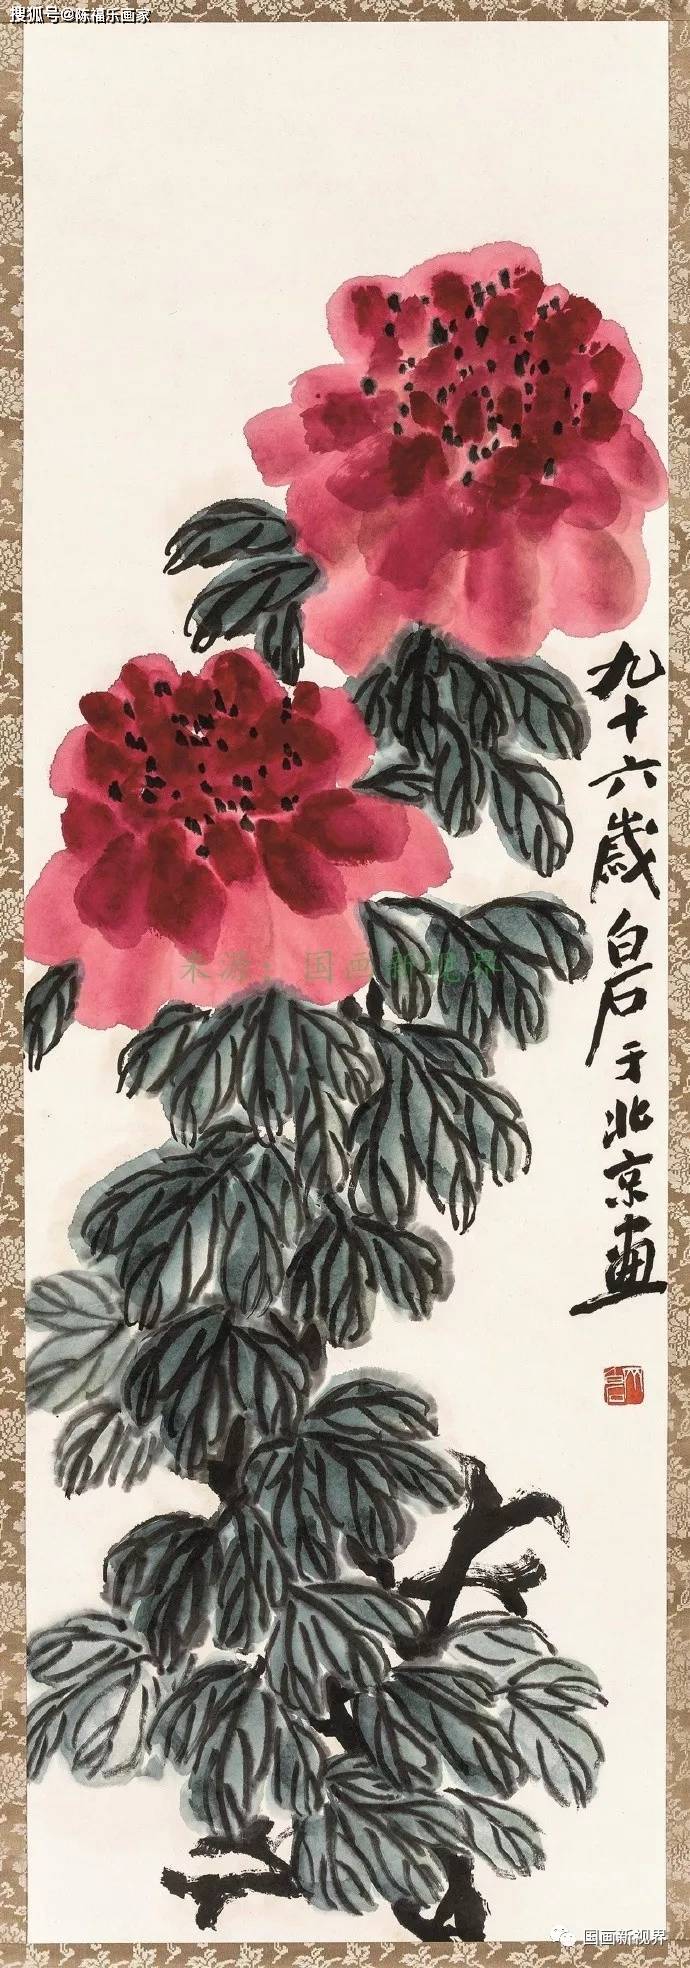 搜狐号@陈福乐画家
九十六歲白石于北京畫
来源：国画新视界
国画新视界